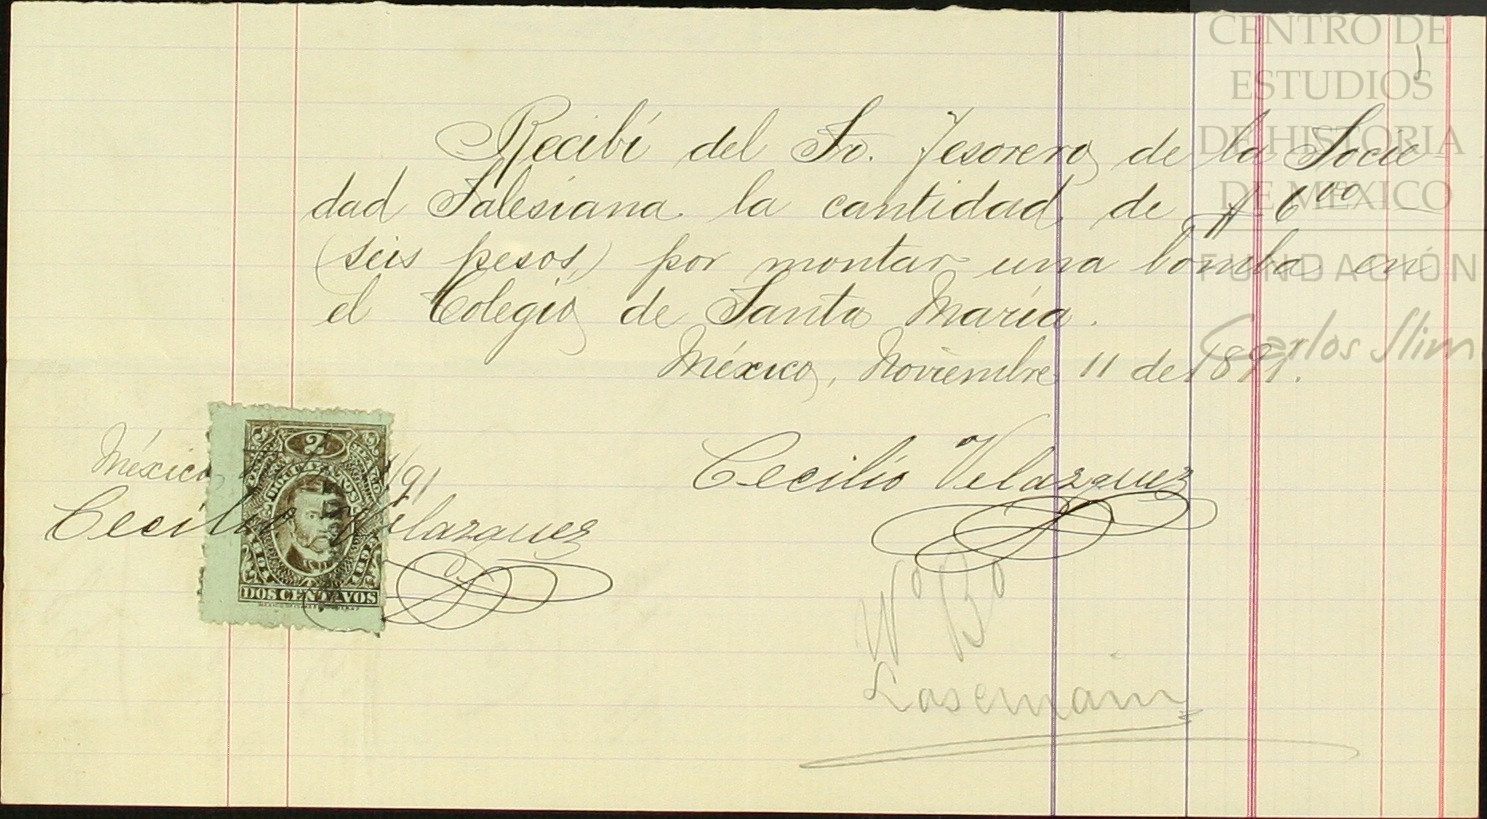 CENTRO DE
ESTUDIOS
DE HISTORIA
DE MÉXICO
FUNDACIÓN
Carlos Slim
Recibí del Sr. Tesorero de la Socie-
dad Salesiana la cantidad de $6.00
(seis pesos) por montar una bomba en
el Colegio de Santa María.
México, Noviembre 11 de 1891.
Cecilio Velazquez
México /91
Cecilio Velazquez
2
DOCUMENTOS
DOS CENTAVOS
Vo Bo